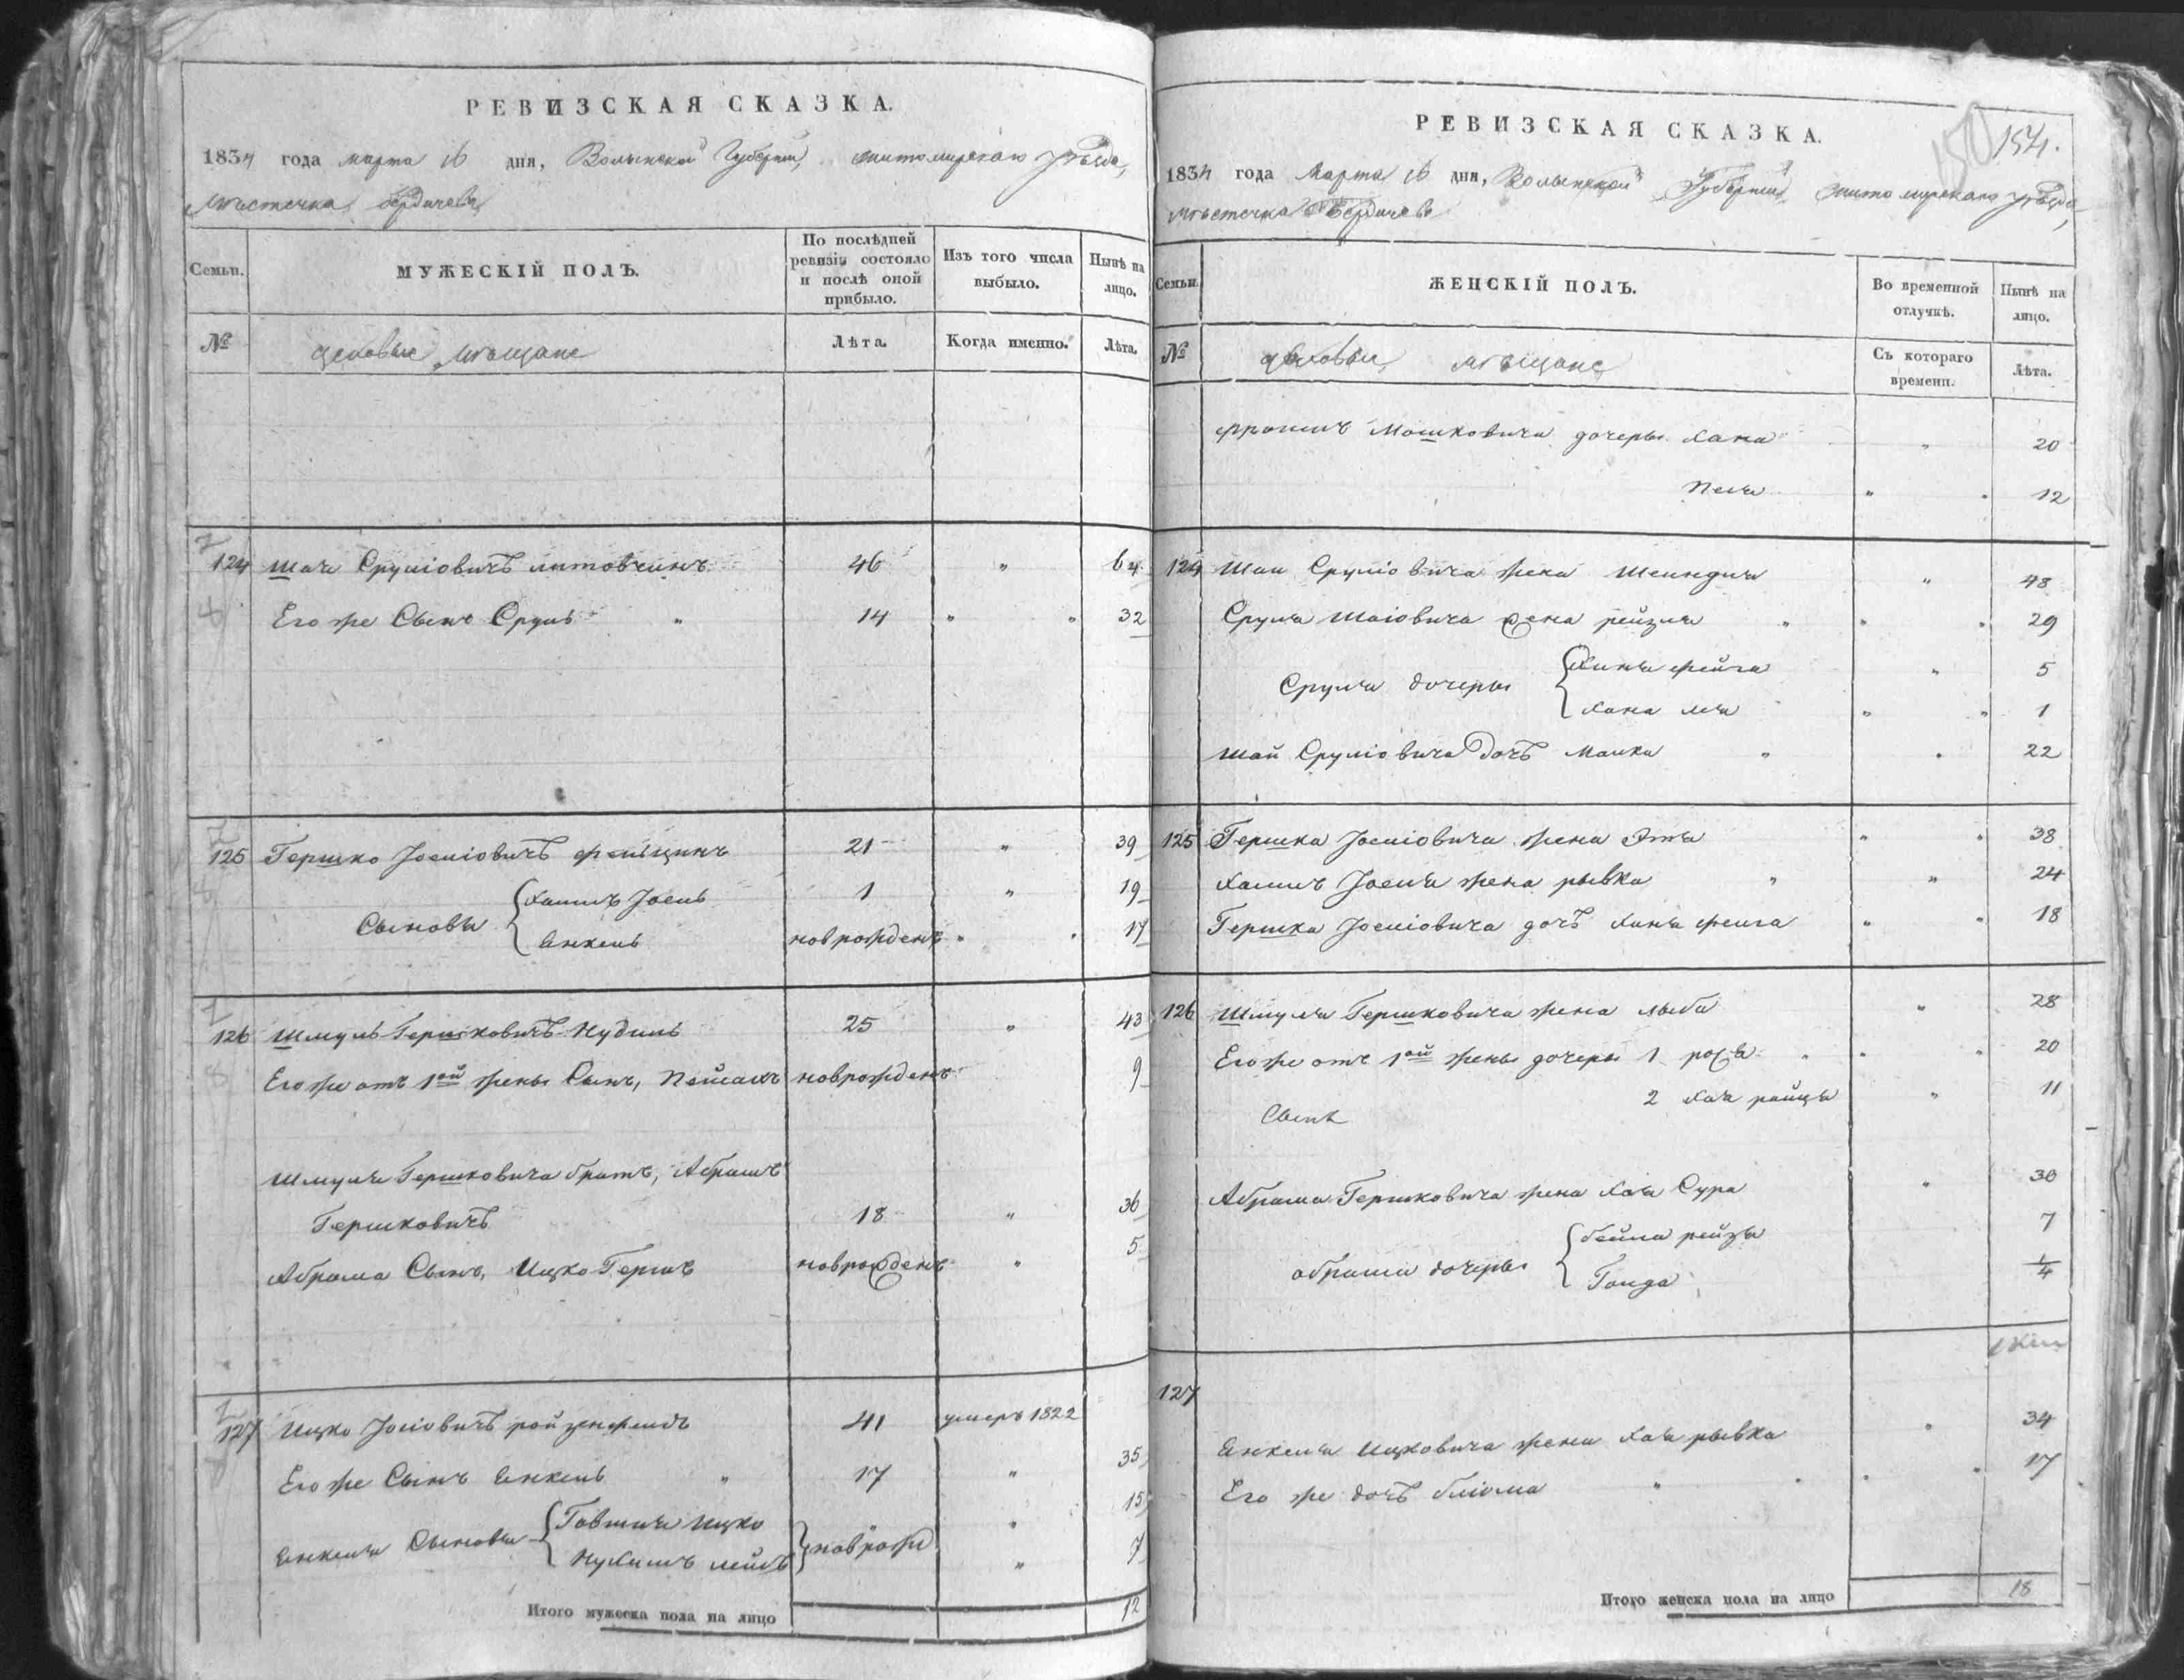 РЕВИЗСКАЯ СКАЗКА.
1834 года марта 16 дня, Волынской Губернии, житомирскаго уѣзда,
мѣстечка бердичева
Семьи.
МУЖЕСКІЙ ПОЛЪ.
По послѣдней ревизіи состояло и послѣ оной прибыло.
Изъ того числа выбыло.
Нынѣ на лицо.
№
цеховые мѣщане
Лѣта.
Когда именно.
Лѣта.
124 Шая Сруліовичъ литовчинъ 46 " 64
Его же Сынъ Сруль " 14 " " 32
125 Гершко Іосиіовичъ 21 " 39
Сыновья Хаимъ Іосиь 1 " 19
Янкель новрожденъ " " 17
126 Шмуль Гершковичъ Нудиль 25 " 43
Его же отъ 1ой жены Сынъ, Пейсахъ новрожденъ 9
Шмуля Гершковича братъ, Абрамъ
Гершковичъ 18 " 36
Абрама Сынъ, Ицко Гершъ новрожденъ " 5
127 Ицко Іосіовичъ ройзенфельдъ 41 умеръ 1822
Его же Сынъ Янкель " 17 " 35
Янкеля Сыновья Товшия Ицко " 15
Нухимъ лейбъ новрожд " 7
Итого мужеска пола на лицо 12
РЕВИЗСКАЯ СКАЗКА.
150 154.
1834 года Марта 16 дня, Волынской Губерніи житомирскаго уѣзда,
мѣстечка Бердичева
Семьи.
ЖЕНСКІЙ ПОЛЪ.
Во временной отлучкѣ.
Нынѣ на лицо.
№
цеховыи мѣщане
Съ котораго времени.
Лѣта.
Мошковича дочеры Хана " 20
Песя " " 12
124 Шаи Сруліовича жена Шейндля " 48
Сруля Шаіовича жена рейзля " " " 29
Сруля дочеры Хиня фейга " 5
Хана лея " " 1
Шаи Сруліовича дочъ Малка " " 22
125 Гершка Іосиіовича жена Этя " " 38
Хаимъ Іосия жена рывка " " 24
Гершка Іосиіовича дочъ Хиня фейга " " 18
126 Шмуля Гершковича жена лыба " 28
Его же отъ 1ой жены дочеры 1 " " " 20
2 Хая райця " 11
Сынъ
Абрама Гершковича жена Хая Сура " 30
абрама дочеры бейла рейзя 7
Голда 1/4
127
Янкеля Ицковича жена Хая рывка " 34
Его же дочъ блюма " " " " 17
Итого женска пола на лицо 18